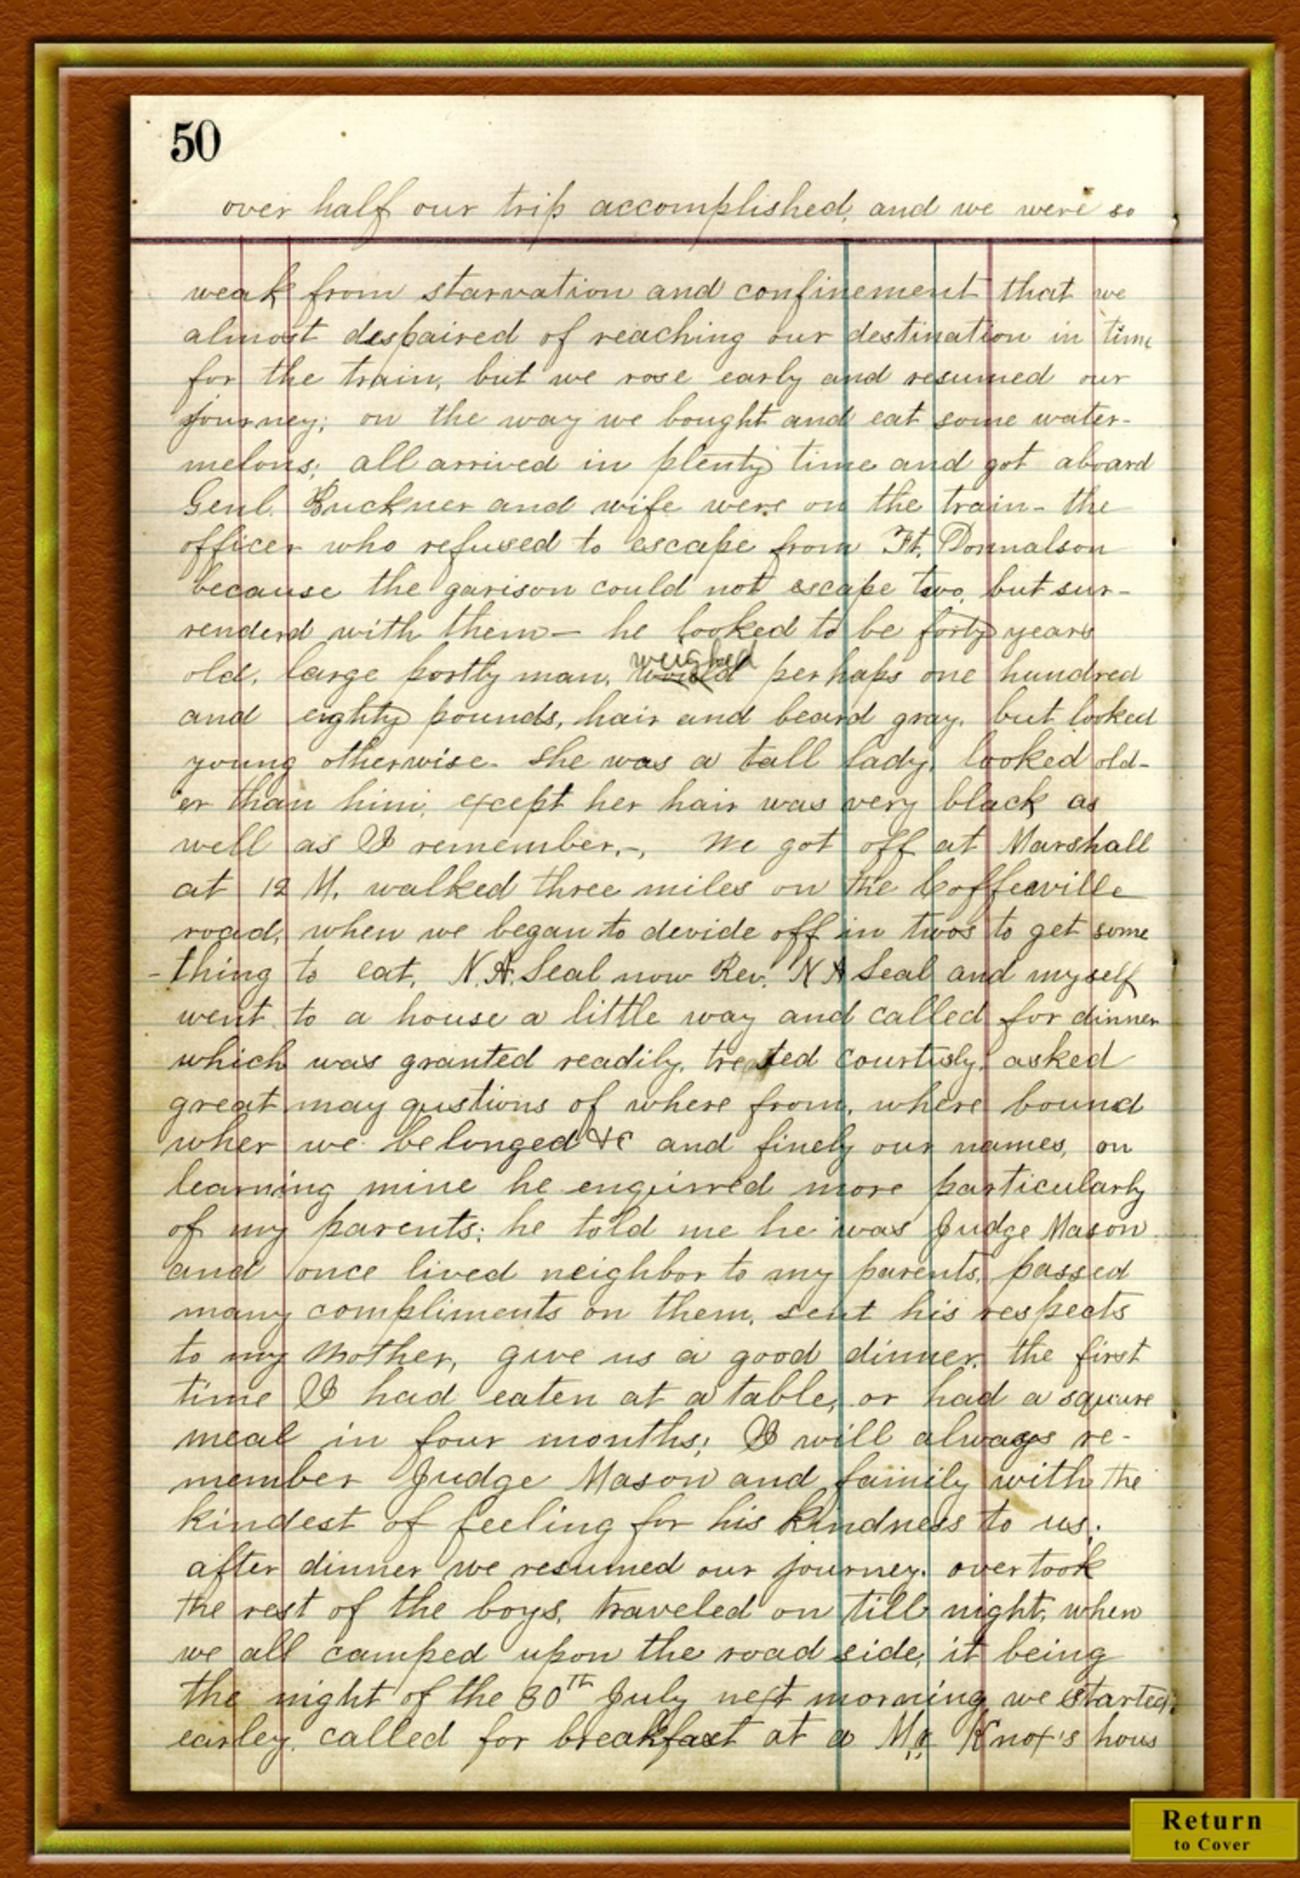 50
over half our trip accomplished, and we were so
weak from starvation and confinement that we
almost despaired of reaching our destination in time
for the train, but we rose early and resumed our
journey; on the way we bought and eat some water-
melons; all arrived in plenty time and got aboard
Genl. Buckner and wife were on the train - the
officer who refused to escape from Ft. Donnalson
because the garison could not escape two, but sur-
renderd with them — he looked to be forty years
old, large portly man, weighed perhaps one hundred
and eighty pounds, hair and beard gray, but looked
young otherwise - she was a tall lady, looked old-
er than him, except her hair was very black as
well as I remember.-, We got off at Marshall
at 12 M. walked three miles on the Coffeeville
road, when we began to devide off in twos to get some
-thing to eat, N.A. Seal now Rev. N A Seal and myself
went to a house a little way and called for dinner
which was granted readily, treated courtisly, asked
great may qustions of where from, where bound
wher we belonged &c and finely our names, on
learning mine he enquirred more particularly
of my parents; he told me he was Judge Mason
and once lived neighbor to my parents, passed
many compliments on them, sent his respects
to my Mother, give us a good dinner, the first
time I had eaten at a table, or had a square
meal in four months; I will always re-
member Judge Mason and family with the
kindest of feeling for his kindness to us.
after dinner we resumed our journey. overtook
the rest of the boys, traveled on till night, when
we all camped upon the road side, it being
the night of the 30th July next morning we started
earley. called for breakfast at a Mr Knox's hous
Return
to Cover